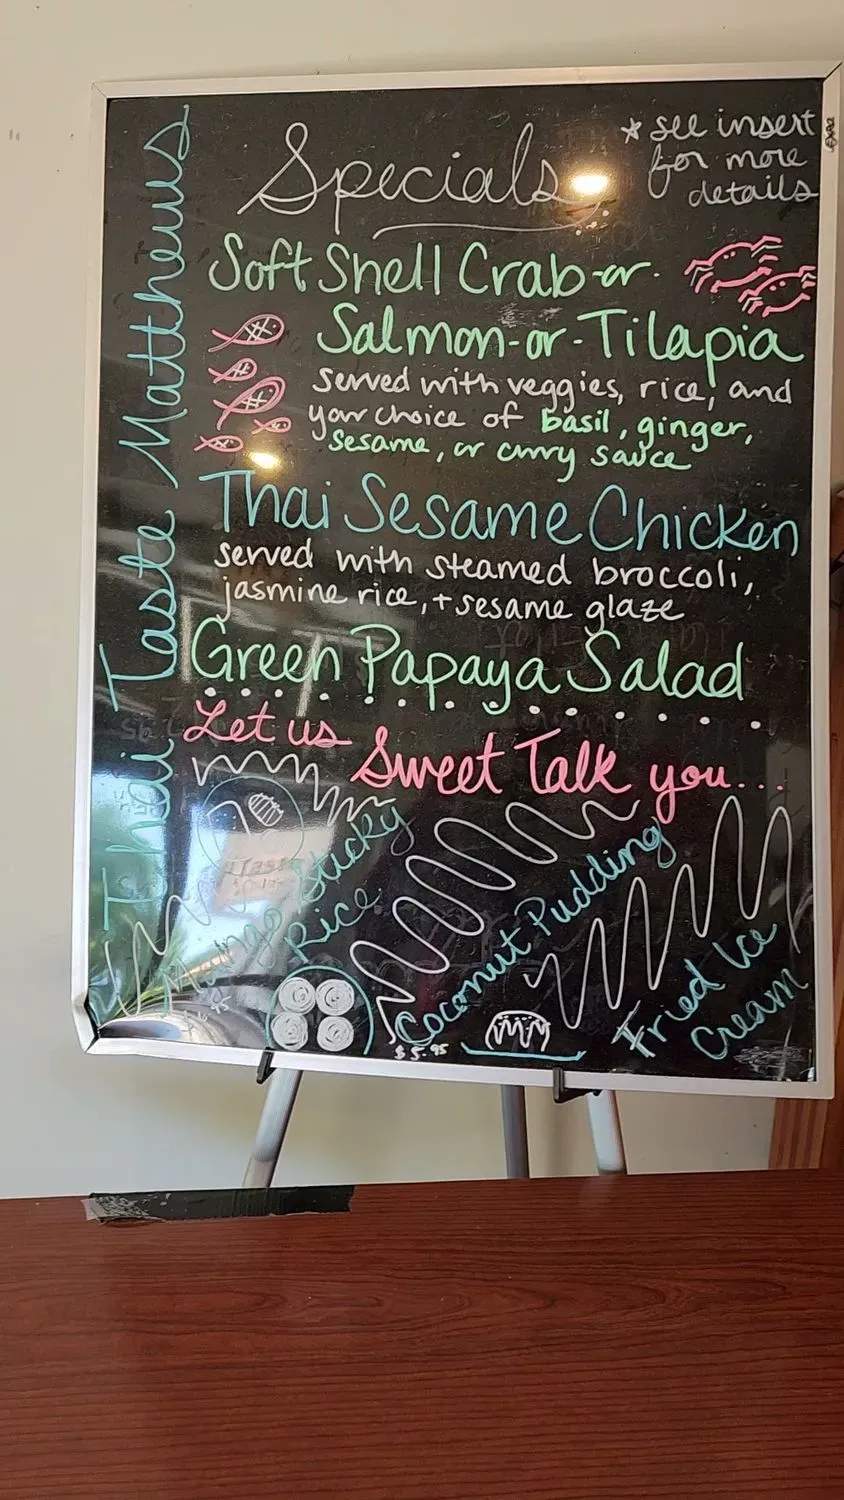 Thai Taste Matthews
Specials
* see insert
for more
details
Soft Shell Crab-or-
Salmon-or-Tilapia
served with veggies, rice, and
your choice of basil, ginger,
sesame, or curry sauce
Thai Sesame Chicken
served with steamed broccoli,
jasmine rice, + sesame glaze
Green Papaya Salad
Let us Sweet Talk you...
Mango Sticky
Rice
Coconut Pudding
$5.95
Fried Ice
Cream